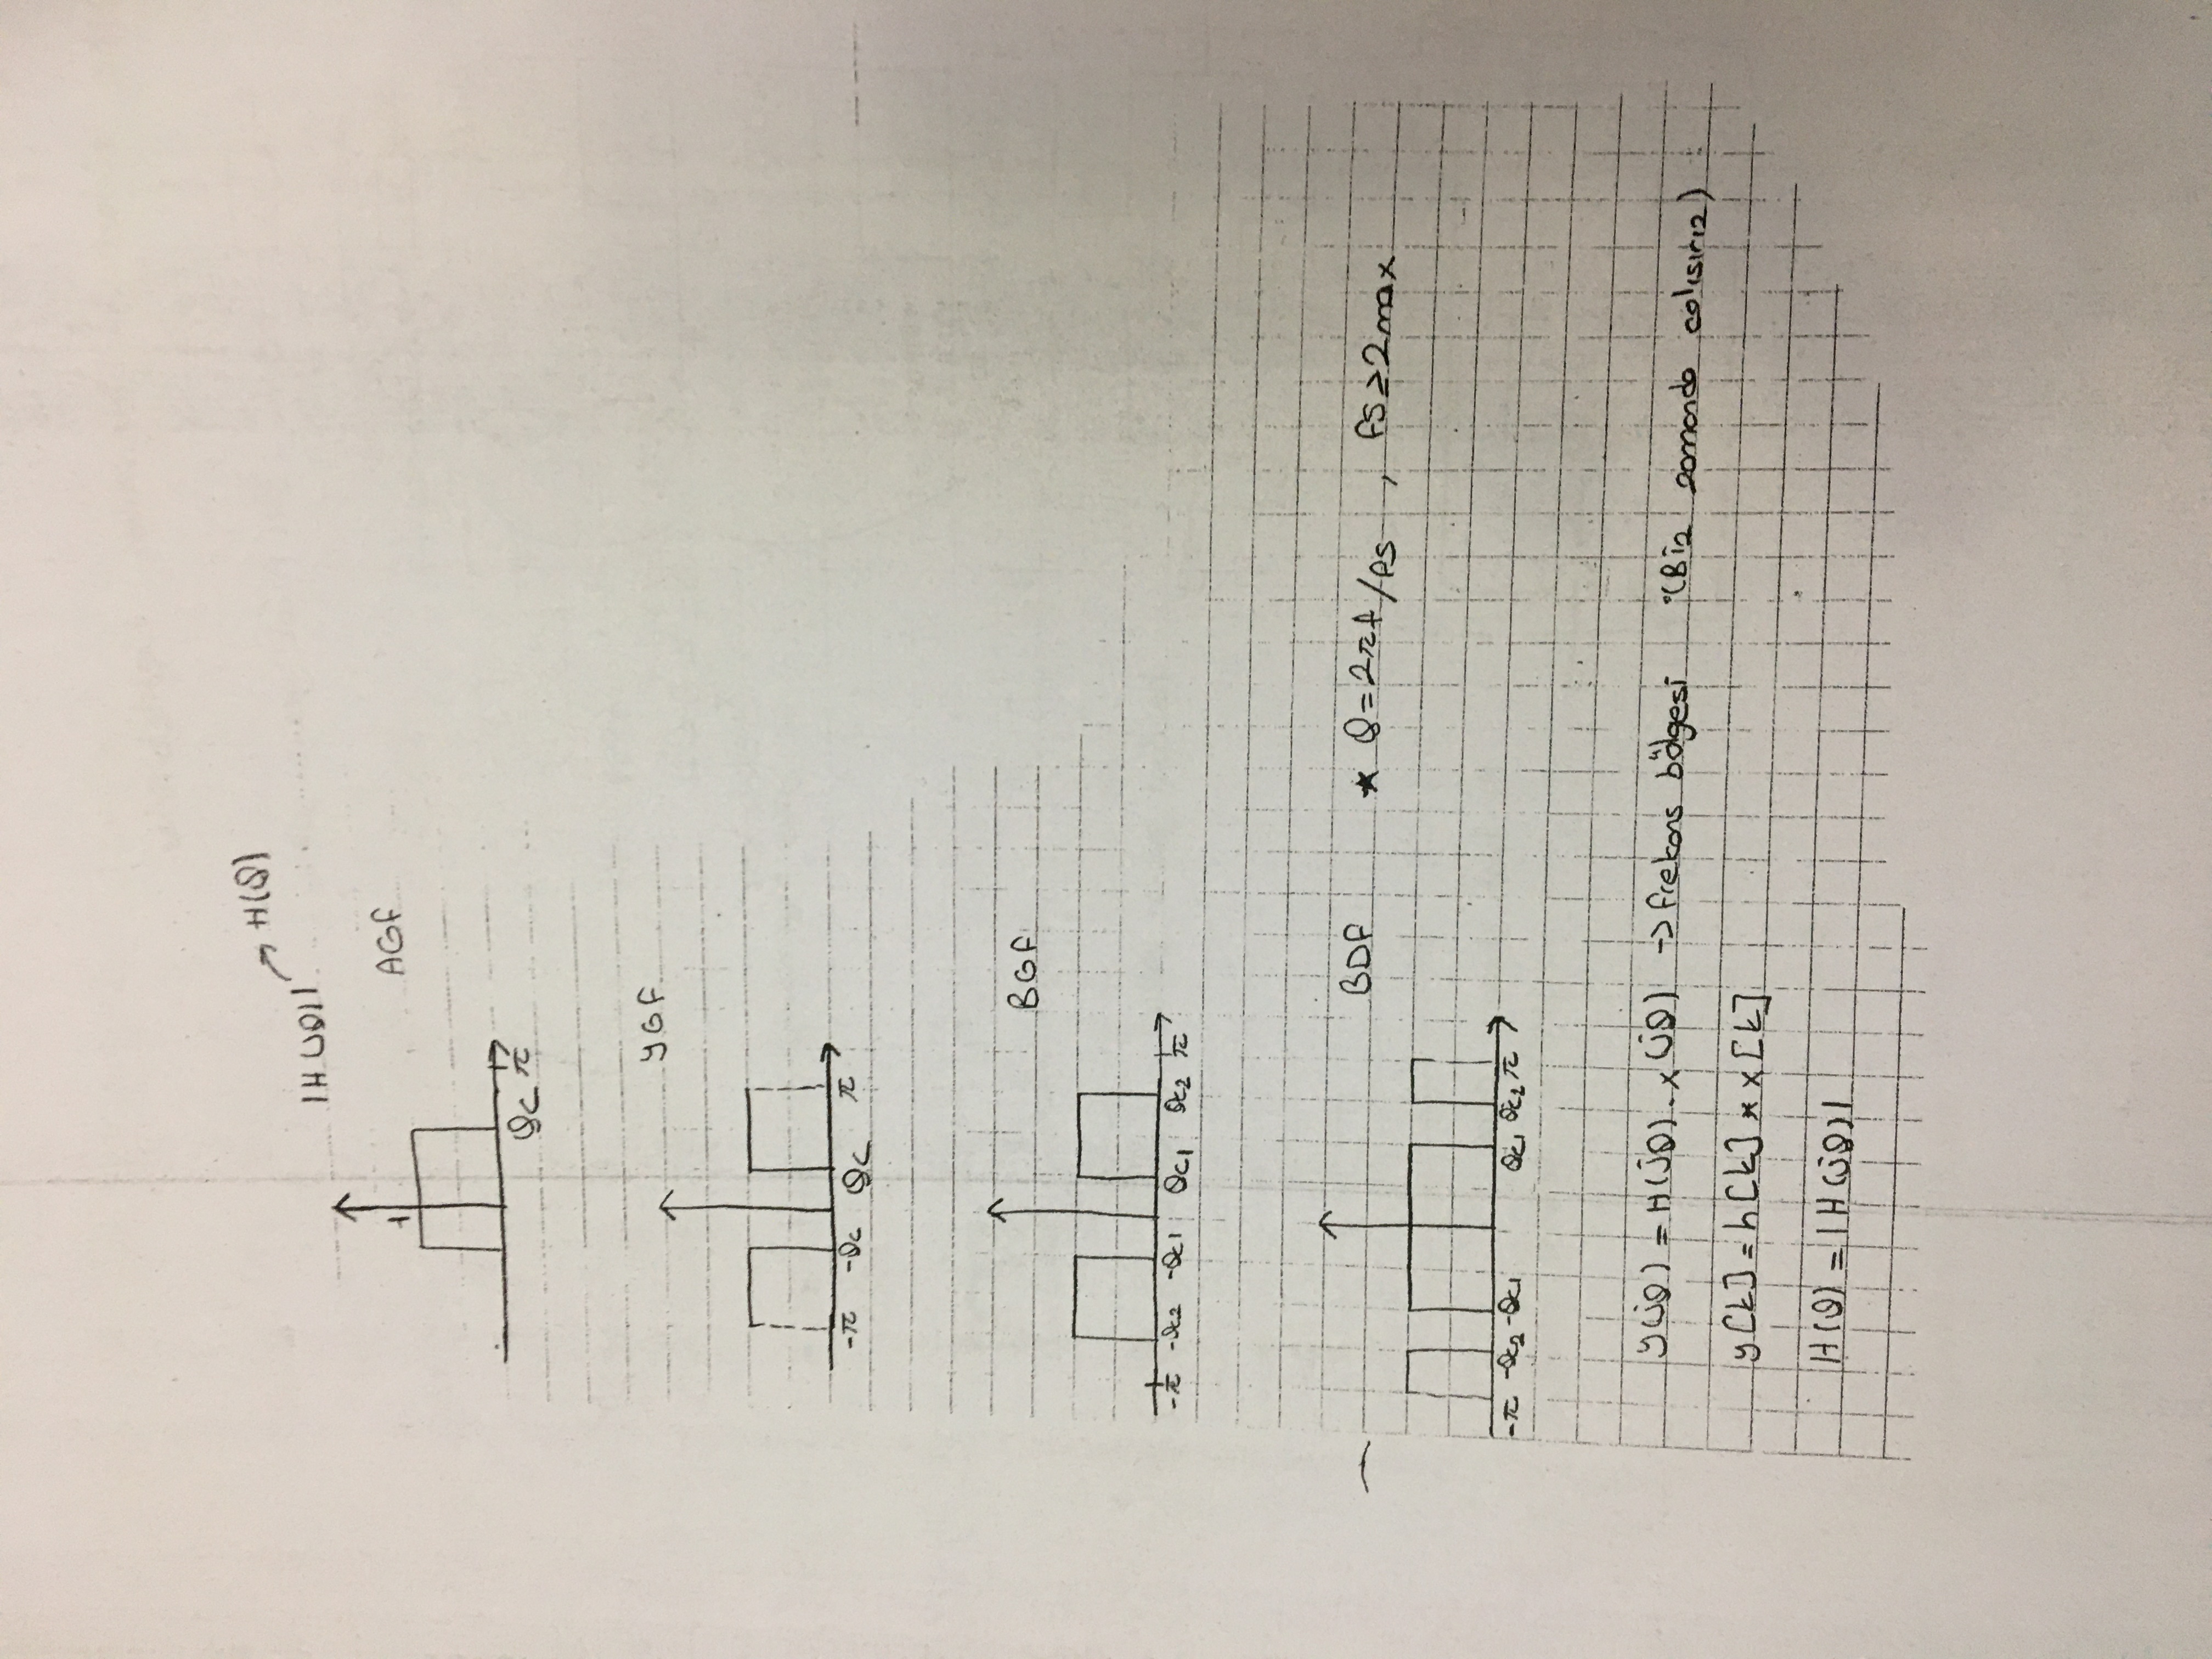 H(θ)
|H(jθ)|
AGF
1
θc π
YGF
-π -θc θc π
BGF
-π -θc2 -θc1 θc1 θc2 π
BDF * θ=2πf/fs , fs≥2max
-π -θc2 -θc1 θc1 θc2 π
y(jθ) = H(jθ) . x(jθ) → frekans bölgesi (Biz zamanda calısırız)
y[k] = h[k] * x[k]
H(θ) = |H(jθ)|